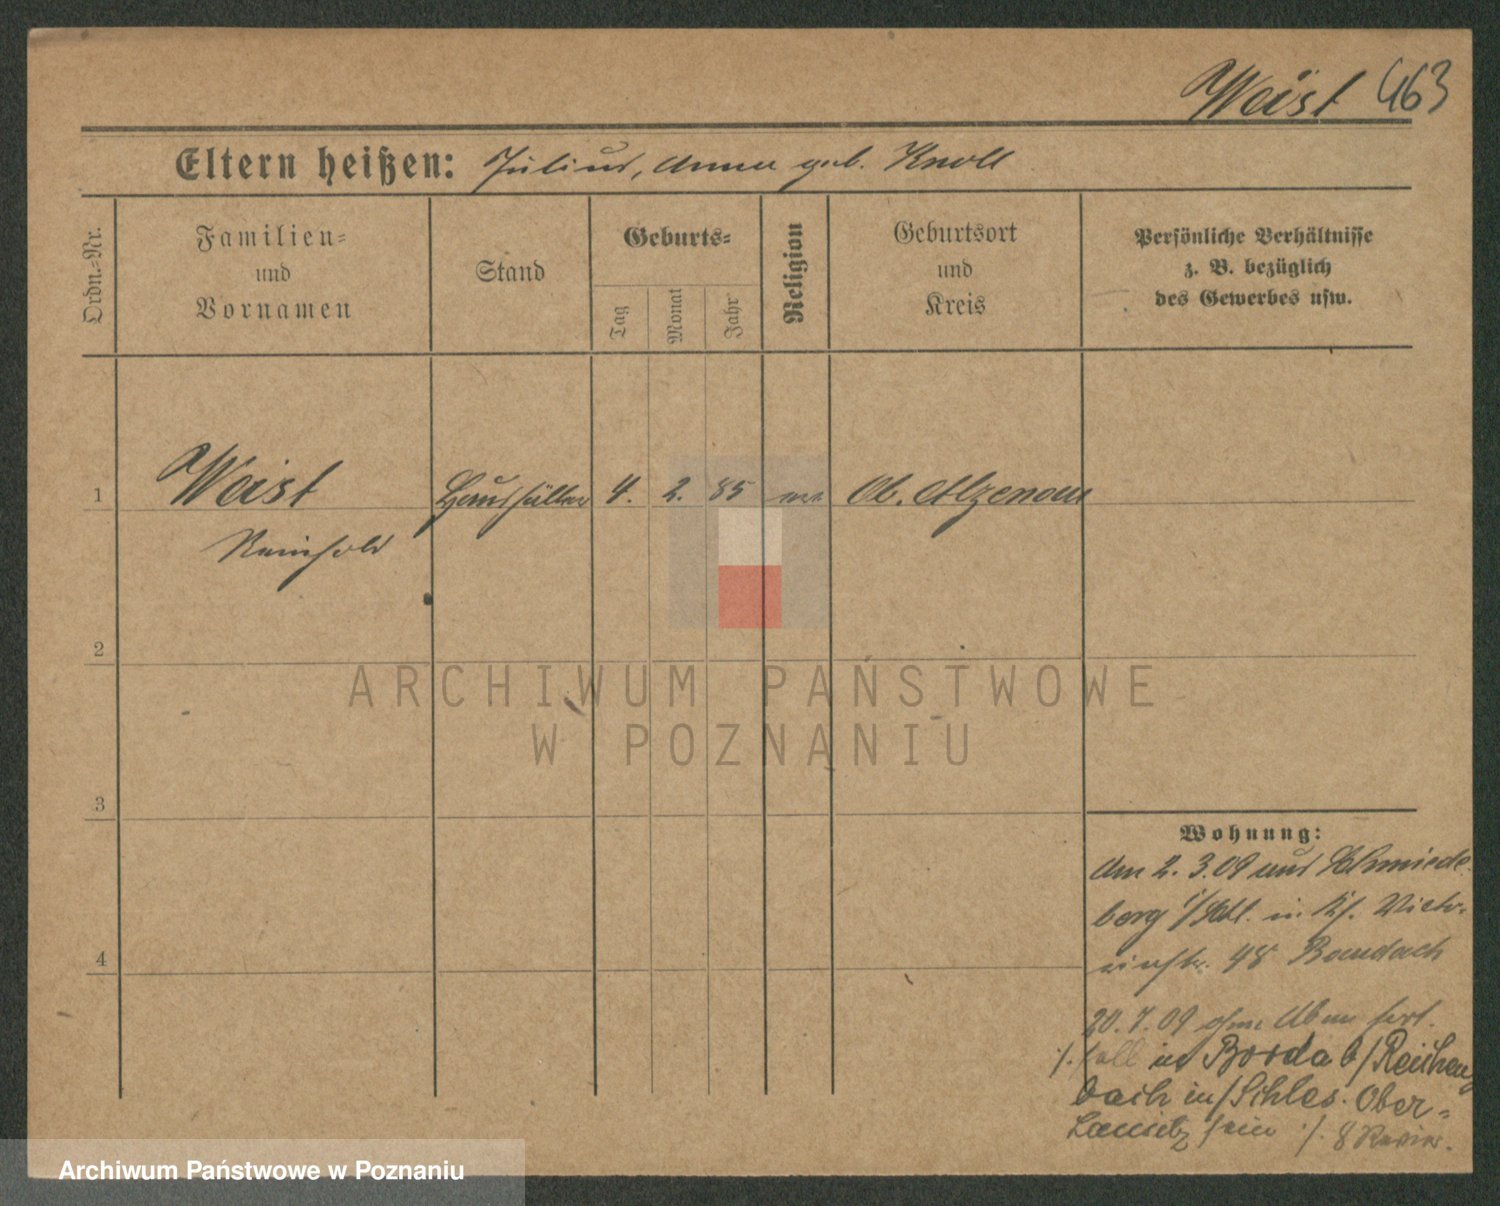 Weist 463
Eltern heißen: Julius, Anna geb. Knoll
Ordn.-Nr.
Familien-
und
Vornamen
Stand
Geburts-
Tag
Monat
Jahr
Religion
Geburtsort
und
Kreis
Persönliche Verhältnisse
z. B. bezüglich
des Gewerbes usw.
1 Weist Haushälter 4. 2. 85 ev. Ob. Alzenau
Reinhold
2
ARCHIWUM PAŃSTWOWE
W POZNANIU
3
Wohnung:
Am 2. 3. 09 aus Schmiede-
berg i/Schl. in Kf. Victo-
riastr. 48 Baudach
20. 7. 09 ohne Abm fort.
4
./. soll in Borda b/Reichen
bach in/Schles. Ober-
Lausitz sein ./. 8 Revier.
Archiwum Państwowe w Poznaniu